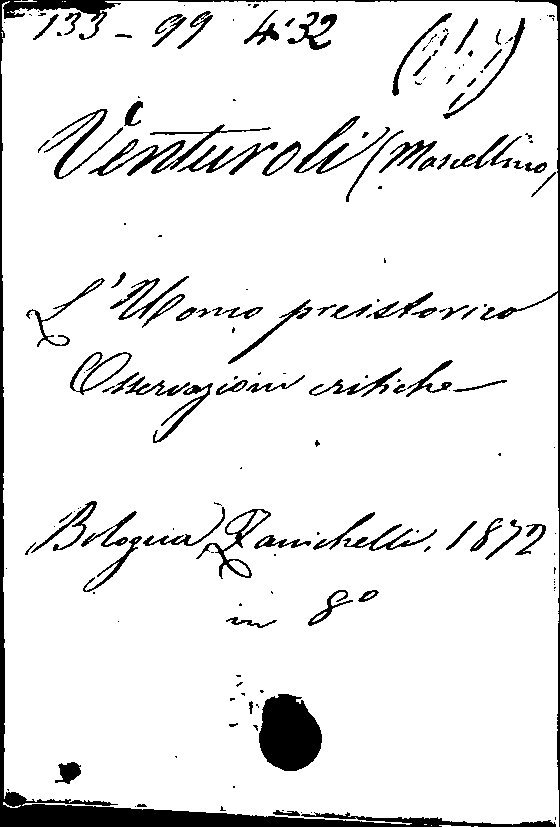 133-99 4.32
Venturoli (Marcellino)
L'Uomo preistorico
Osservazioni critiche
Bologna, Zanichelli. 1872
in 8°